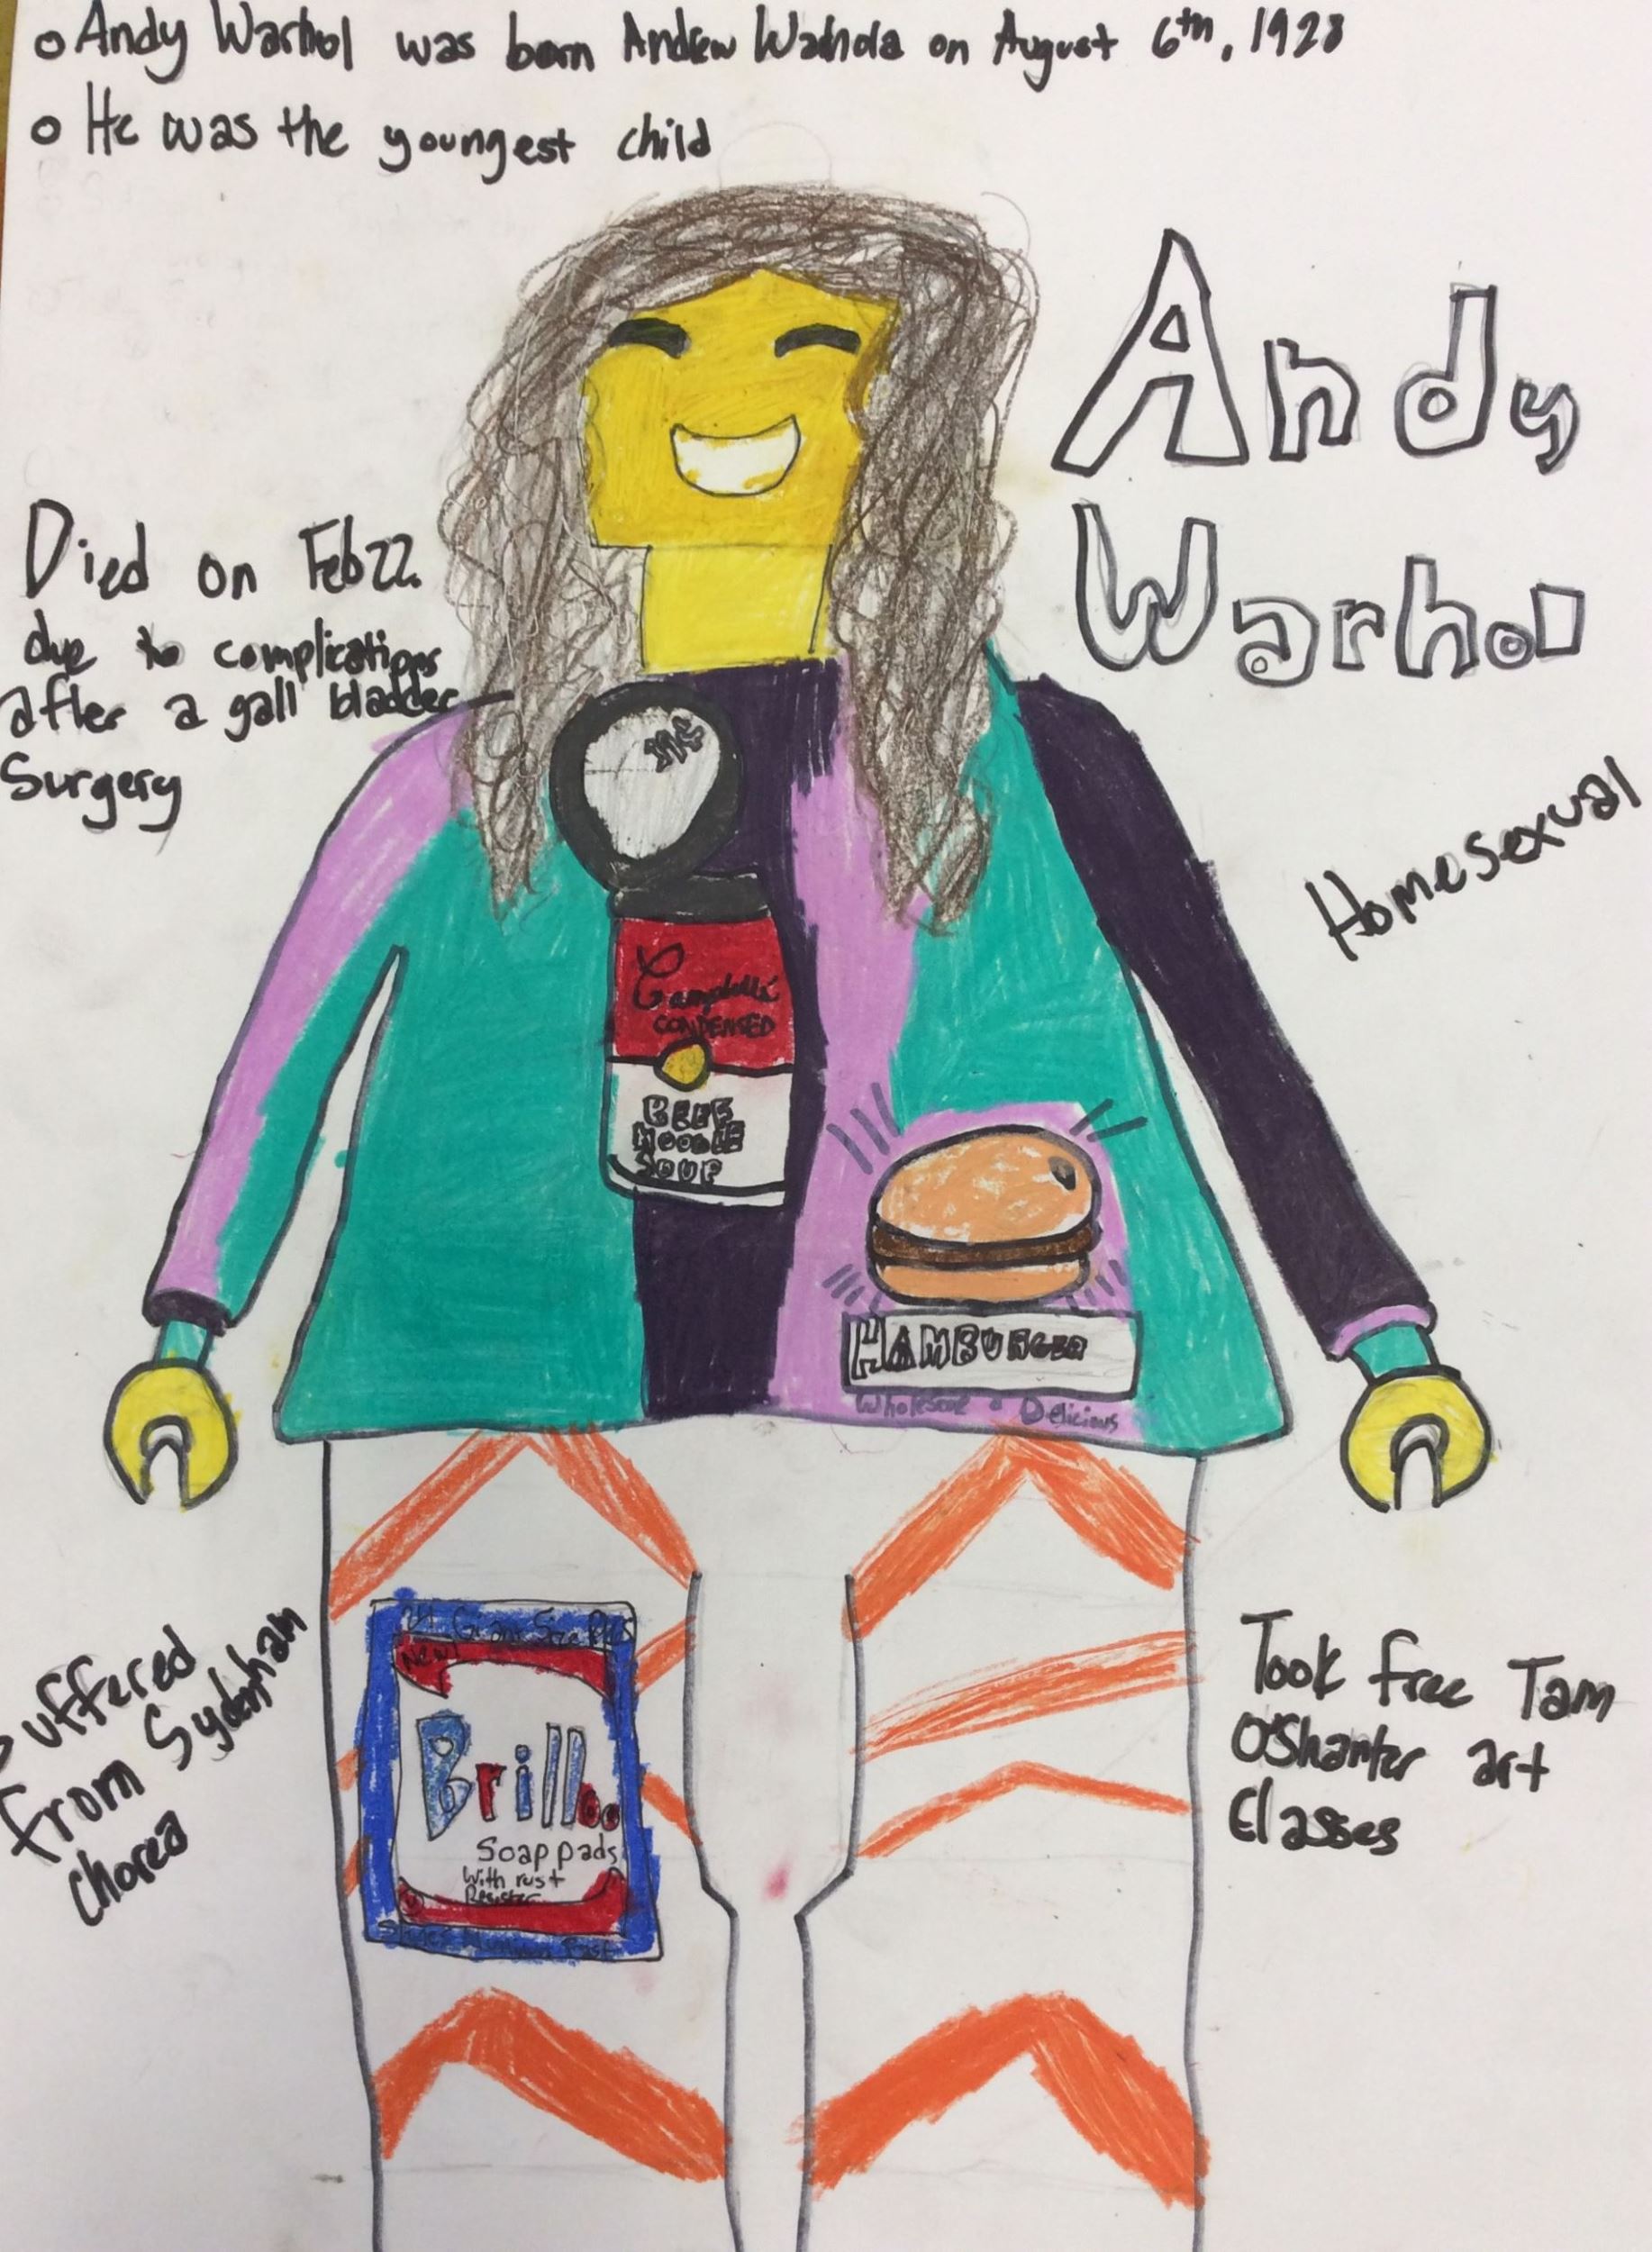 o Andy Warhol was born Andrew Warhola on August 6th, 1928
o He was the youngest child
Andy
Warhol
Died on Feb 22.
due to complications
after a gall bladder
Surgery
Homesexual
Campbell's
CONDENSED
BEEF
NOODLE
SOUP
HAMBURGER
Wholesome & Delicious
Suffered
From Sydenham
Chorea
24 Giant Size PKGS
New!
Brillo
Soap pads
With rust
Resister
Took free Tam
O'Shanter art
Classes